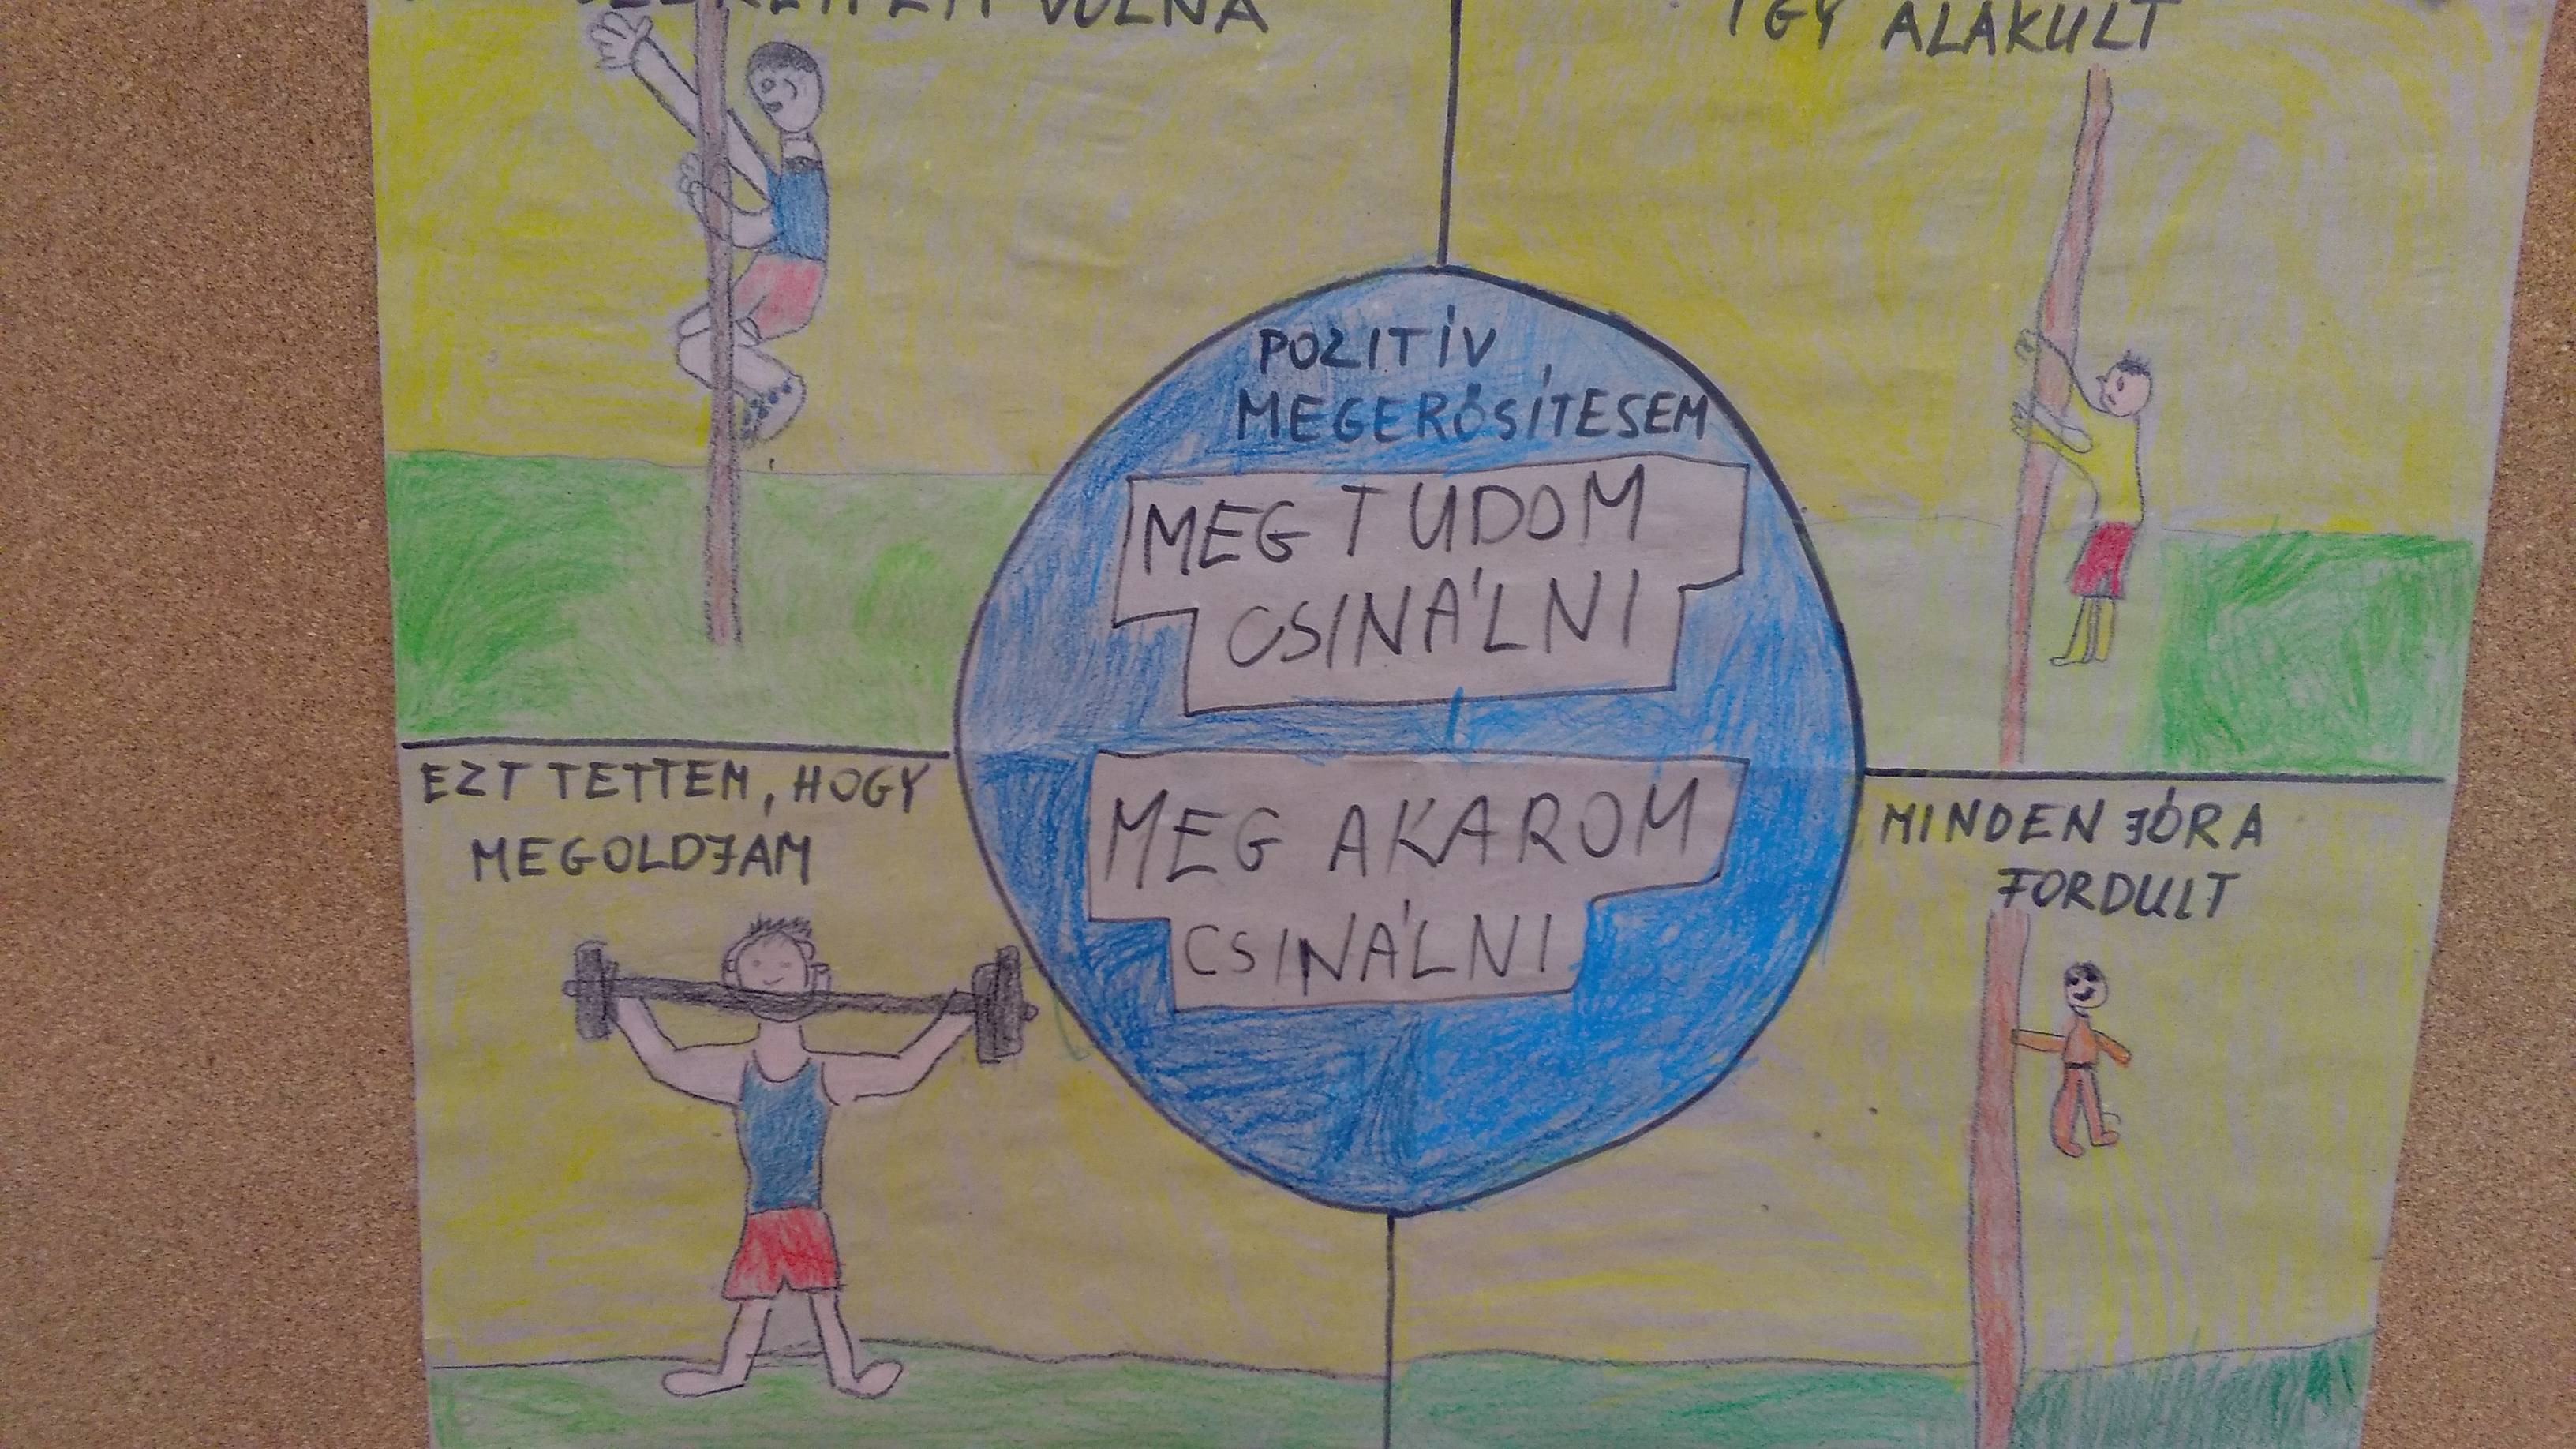 SZERETTEM VOLNA
ÍGY ALAKULT
POZITÍV
MEGERŐSÍTÉSEM
MEG TUDOM
CSINÁLNI
MEG AKAROM
CSINÁLNI
EZT TETTEM, HOGY
MEGOLDJAM
MINDEN JÓRA
FORDULT